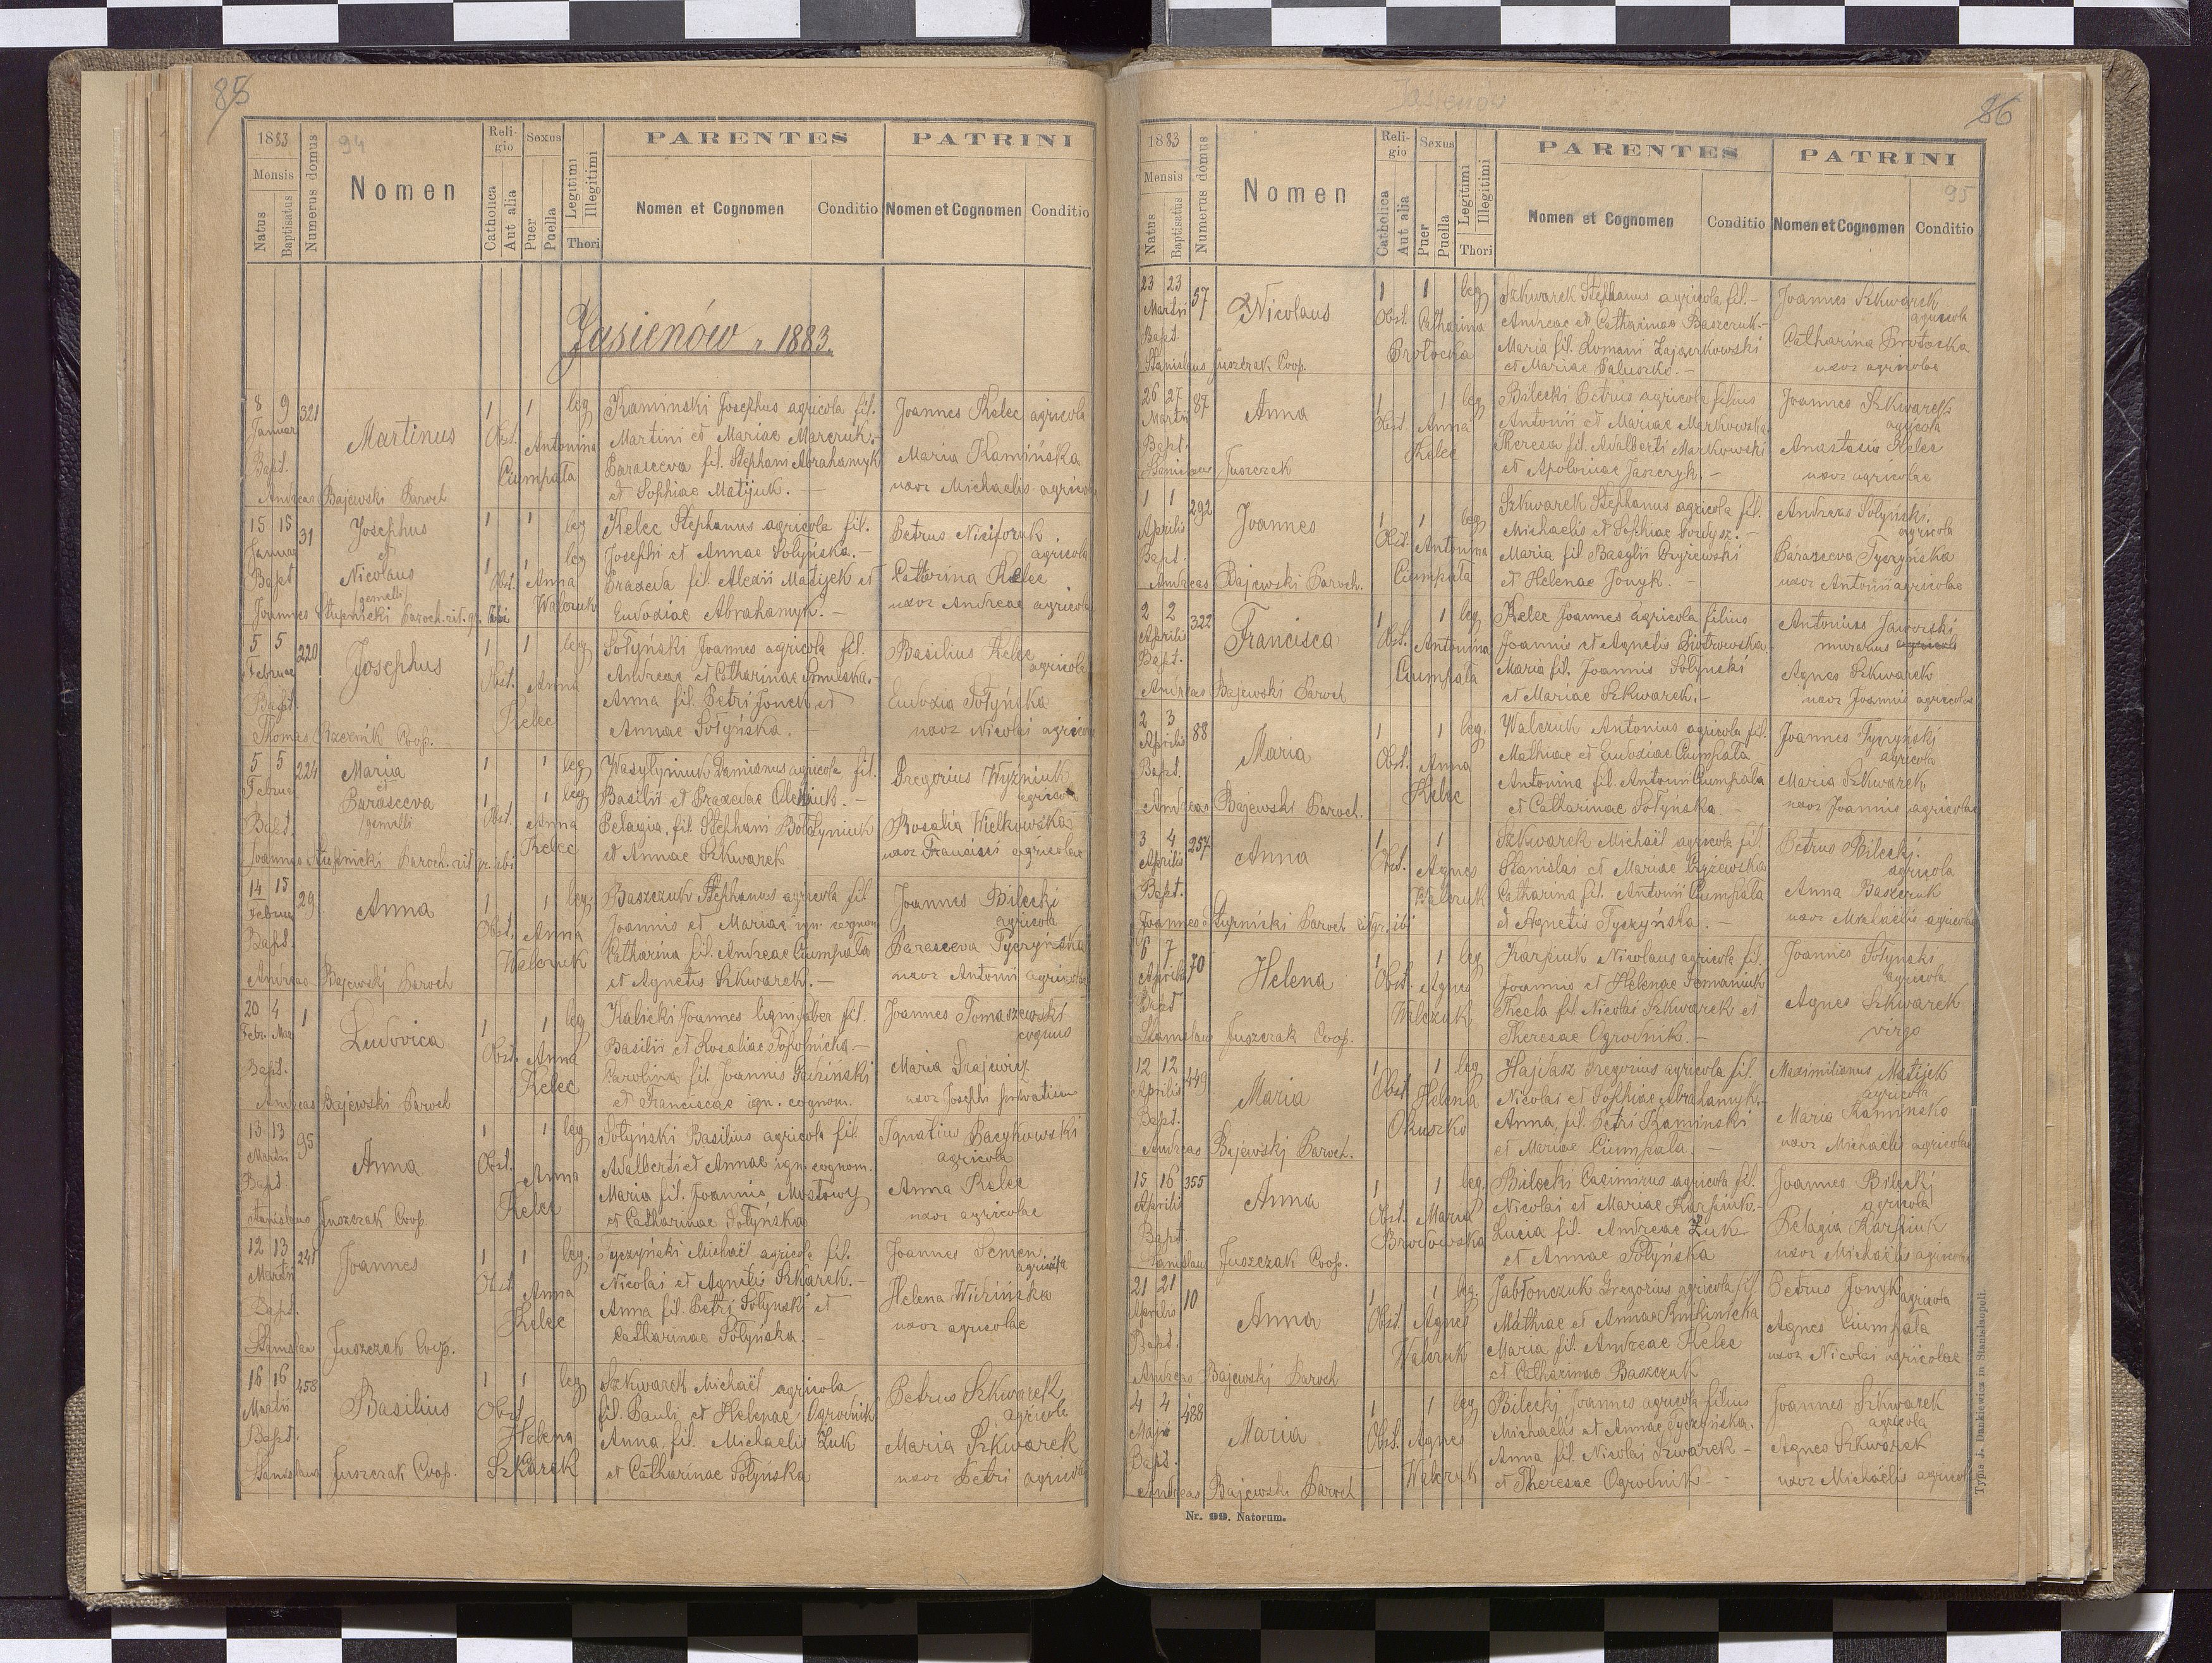 85
94
1883
Mensis
Natus
Baptisatus
Numerus domus
Nomen
Religio
Catholica
Aut alia
Sexus
Puer
Puella
Legitimi
Illegitimi
Thori
PARENTES
Nomen et Cognomen
Conditio
PATRINI
Nomen et Cognomen
Conditio
Jasienów r. 1883.
8 9 321 Martinus 1 1 leg
Januar
Bapt. Obst. Antonina Ciumpała
Andreas Bajewski Paroch
Kamiński Josephus agricola fil.
Martini et Mariae Marczuk.-
Parasceva fil. Stephani Abrahamyk
et Sophiae Matijuk. -
Joannes Kelec agricola
Maria Kamińska
uxor Michaelis agricola
15 15 31 Josephus
et
Nicolaus
/gemelli/
Bapt Obst. Anna Walczuk
Joannes Stupnicki Paroch. rit. gr. ibi
Kelec Stephanus agricola fil.
Josephi et Annae Sołyńska.-
Praxeda fil. Alexii Matijek et
Eudoxiae Abrahamyk.-
Petrus Niciforuk
agricola
Catharina Kelec
uxor Andreae agricola
5 5 220 Josephus 1 1 leg
Februar
Bapt. Obst. Anna Kelec
Thomas Rzeznik Coop.
Sołyński Joannes agricola fil.
Andreae et Catharinae Smulska.-
Anna fil. Petri Jonek et
Annae Sołyńska. -
Basilius Kelec
agricola
Eudoxia Sołyńska
uxor Nicolai agricola
5 5 224 Maria
et
Parasceva
/gemelli
Bapt. Obst. Anna Kelec
Joannes Stupnicki Paroch. rit. gr. ibi
Wasylyniuk Damianus agricola fil.
Basilii et Praxedae Oleniuk. -
Pelagia, fil. Stephani Bołdyniuk
et Annae Szkwarek
Gregorius Wyżniuk
agricola
Rosalia Wielkowska
uxor Francisci agricolae
14 15 29 Anna 1 1 leg
Februar
Bapt. Obst. Anna Walczuk
Andreas Bajewski Paroch
Baszczuk Stephanus agricola fil
Joannis et Mariae ign. cognom
Catharina fil. Andreae Ciumpała
et Agnetis Szkwarek.-
Joannes Bilecki
agricola
Parasceva Tyczyńska
uxor Antonii agricolae
20 4 1 Ludovica 1 1 leg
Febr. Mar
Bapt. Obst. Anna Kelec
Andreas Bajewski Paroch
Kalicki Joannes lignifaber fil.
Basilii et Rosaliae Topolnicka.-
Carolina fil. Joannis
et Franciscae ign. cognom.
Joannes Tomaszewski
coquus
Maria Grajewicz
uxor Josephi privatier
13 13 95 Anna 1 1 leg
Martii
Bapt Obst. Anna Kelec
Stanislaus Juszczak Coop.
Sołyński Basilius agricola fil.
Adalberti et Annae ign. cognom.
Maria fil. Joannis Mostowy
et Catharinae Sołyńska
Ignatius Bacykowski
agricola
Anna Kelec
uxor agricolae
12 13 241 Joannes 1 1 leg.
Martii
Bapt. Obst Anna Kelec
Stanislaus Juszczak Coop.
Tyczyński Michaël agricola fil.
Nicolai et Agnetis Szkarek.-
Anna fil. Petri Sołyński et
Catharinae Sołyńska. -
Joannes Semen
agricola
Helena Wichińska
uxor agricolae
16 16 458 Basilius 1 1 leg
Martii
Bapt. Obst Helena Szkarek
Stanislaus Juszczak Coop.
Szkwarek Michaël agricola
fil. Pauli et Helenae Ogrodnik
Anna, fil. Michaelis Żuk
et Catharinae Sołyńska
Petrus Szkwarek
agricola
Maria Szkwarek
uxor Petri agricola
Jasienow
86
95
1883
Mensis
Natus
Baptisatus
Numerus domus
Nomen
Religio
Catholica
Aut alia
Sexus
Puer
Puella
Legitimi
Illegitimi
Thori
PARENTES
Nomen et Cognomen
Conditio
PATRINI
Nomen et Cognomen
Conditio
23 23 57 Nicolaus 1 1 leg
Martii
Bapt. Obst. Catharina Protocka
Stanislaus Juszczak Coop.
Szkwarek Stephanus agricola fil.-
Andreae et Catharinae Baszczuk.-
Maria fil. Romani Zajączkowski
et Mariae Paluszko.-
Joannes Szkwarek
agricola
Catharina Protocka
uxor agricolae
26 27 87 Anna 1 1 leg
Martii
Bapt. Obst Anna Kelec
Stanislaus Juszczak
Bilecki Petrus agricola filius
Antonii et Mariae Markowska
Theresa fil. Adalberti Markowski
et Apoloniae Jaszczyk.-
Joannes Szkwarek
agricola
Anastasia Kelec
uxor agricolae
1 1 292 Joannes 1 1 leg
Aprilis
Bapt. Obst. Antonina Ciumpała
Andreas Bajewski Paroch.
Szkwarek Stephanus agricola fil.
Michaelis et Sophiae Dowdysz.-
Maria fil Basylii Gryżewski
et Helenae Jonyk. -
Andreas Sołyński.
agricola
Parasceva Tyczyńska
uxor Antonii agricolae
2 2 322 Francisca 1 1 leg
Aprilis
Bapt. Obst. Antonina Ciumpała
Andreas Bajewski Paroch
Kelec Joannes agricola filius
Joannis et Agnetis Piotrowska
Maria fil. Joannis Sołyński
et Mariae Szkwarek.-
Antonius Jaworski
murarius agricola
Agnes Szkwarek
uxor Joannis agricolae
2 3 88 Maria 1 1 leg.
Aprilis
Bapt. Obst. Anna Kelec
Andreas Bajewski Paroch.
Walczuk Antonius agricola fil.
Mathiae et Eudoxiae Ciumpała
Antonina fil. Antonii Ciumpała
et Catharinae Sołyńska -
Joannes Tyczyński
agricola
Maria Szkwarek
uxor Joannis agricolae
3 4 257 Anna 1 1
Aprilis
Bapt. Obst. Agnes Walczuk
Joannes Stupnicki Paroch rit gr. ibi
Szkwarek Michaël agricola fil.
Stanislai et Mariae Gryżewska
Catharina fil. Antonii Ciumpała
et Agnetis Tyczyńska.
Petrus Bilecki.
agricola
Anna Baszczuk
uxor Michaelis agricolae
6 7 70 Helena 1 1 leg
Aprilis
Bapt Obst. Agnes Walczuk
Stanislaus Juszczak Coop.
Karpiuk Nicolaus agricola fil.
Joannis et Helenae Semaniuk
Thecla fil Nicolai Szkwarek et
Theresae Ogrodnik.-
Joannes Sołyński
agricola
Agnes Szkwarek
virgo
12 12 449 Maria 1 1 leg
Aprilis
Bapt. Obst Helena Okuszko
Andreas Bajewski Paroch.
Hajdasz Gregorius agricola fil.
Nicolai et Sophiae Abrahamyk-
Anna, fil. Petri Kamiński
et Mariae Ciumpała.-
Maximilianus Matijek
agricola
Maria Kaminsko
uxor Michaelis agricolae
15 16 355 Anna 1 1 leg.
Aprilis
Bapt. Obst. Maria Brodowska
Stanislaus Juszczak Coop.
Bilecki Casimirus agricola fil.
Nicolai et Mariae Karpiuk.-
Lucia fil. Andreae Żuk
et Annae Sołyńska
Joannes Bilecki
agricola
Pelagia Karpiuk
uxor Michaelis agricolae
21 21 10 Anna 1 1 leg.
Aprilis
Bapt. Obst. Agnes Walczuk
Andreas Bajewski Paroch
Jabłonczuk Gregorius agricola fil
Mathiae et Annae
Maria fil. Andreae Kelec
et Catharinae Baszczuk
Petrus Jonyk agricola
Agnes Ciumpała
uxor Nicolai agricolae
4 4 488 Maria 1 1 leg
Maji
Bapt. Obst. Agnes Walczuk
Andreas Bajewski Paroch
Bilecki Joannes agricola filius
Michaelis et Annae Tyczyńska.
Anna fil. Nicolai Szwarek -
et Theresae Ogrodnik -
Joannes Szkwarek
agricola
Agnes Szkwarek
uxor Michaelis agricol
Nr. 99. Natorum.
Typis J. Dankiewicz in Stanislaopoli.